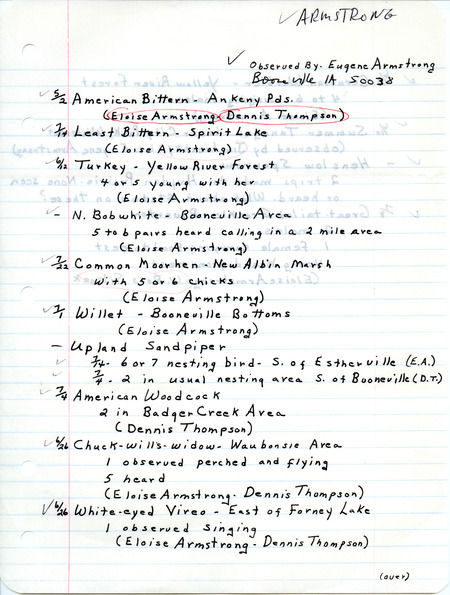 ✓ ARMSTRONG
✓ Observed By. Eugene Armstrong
Booneville IA 50038
✓ 5/2 American Bittern - Ankeny Pds.
(Eloise Armstrong - Dennis Thompson)
✓ Least Bittern - Spirit Lake
(Eloise Armstrong)
✓ Turkey - Yellow River Forest
4 or 5 young with her
(Eloise Armstrong)
- N. Bobwhite - Booneville Area
5 to 6 pairs heard calling in a 2 mile area
(Eloise Armstrong)
✓ 7/22 Common Moorhen - New Albin Marsh
with 5 or 6 chicks
(Eloise Armstrong)
✓ 7/1 Willet - Booneville Bottoms
(Eloise Armstrong)
- Upland Sandpiper
✓ 7/4 - 6 or 7 nesting bird - S. of Estherville (E.A.)
✓ 7/4 - 2 in usual nesting area S. of Booneville (D.T.)
✓ 7/4 American Woodcock
2 in Badger Creek Area
(Dennis Thompson)
✓ 6/26 Chuck-will's-widow - Waubonsie Area
1 observed perched and flying
5 heard
(Eloise Armstrong - Dennis Thompson)
✓ 6/26 White-eyed Vireo - East of Forney Lake
1 observed singing
(Eloise Armstrong - Dennis Thompson)
(over)